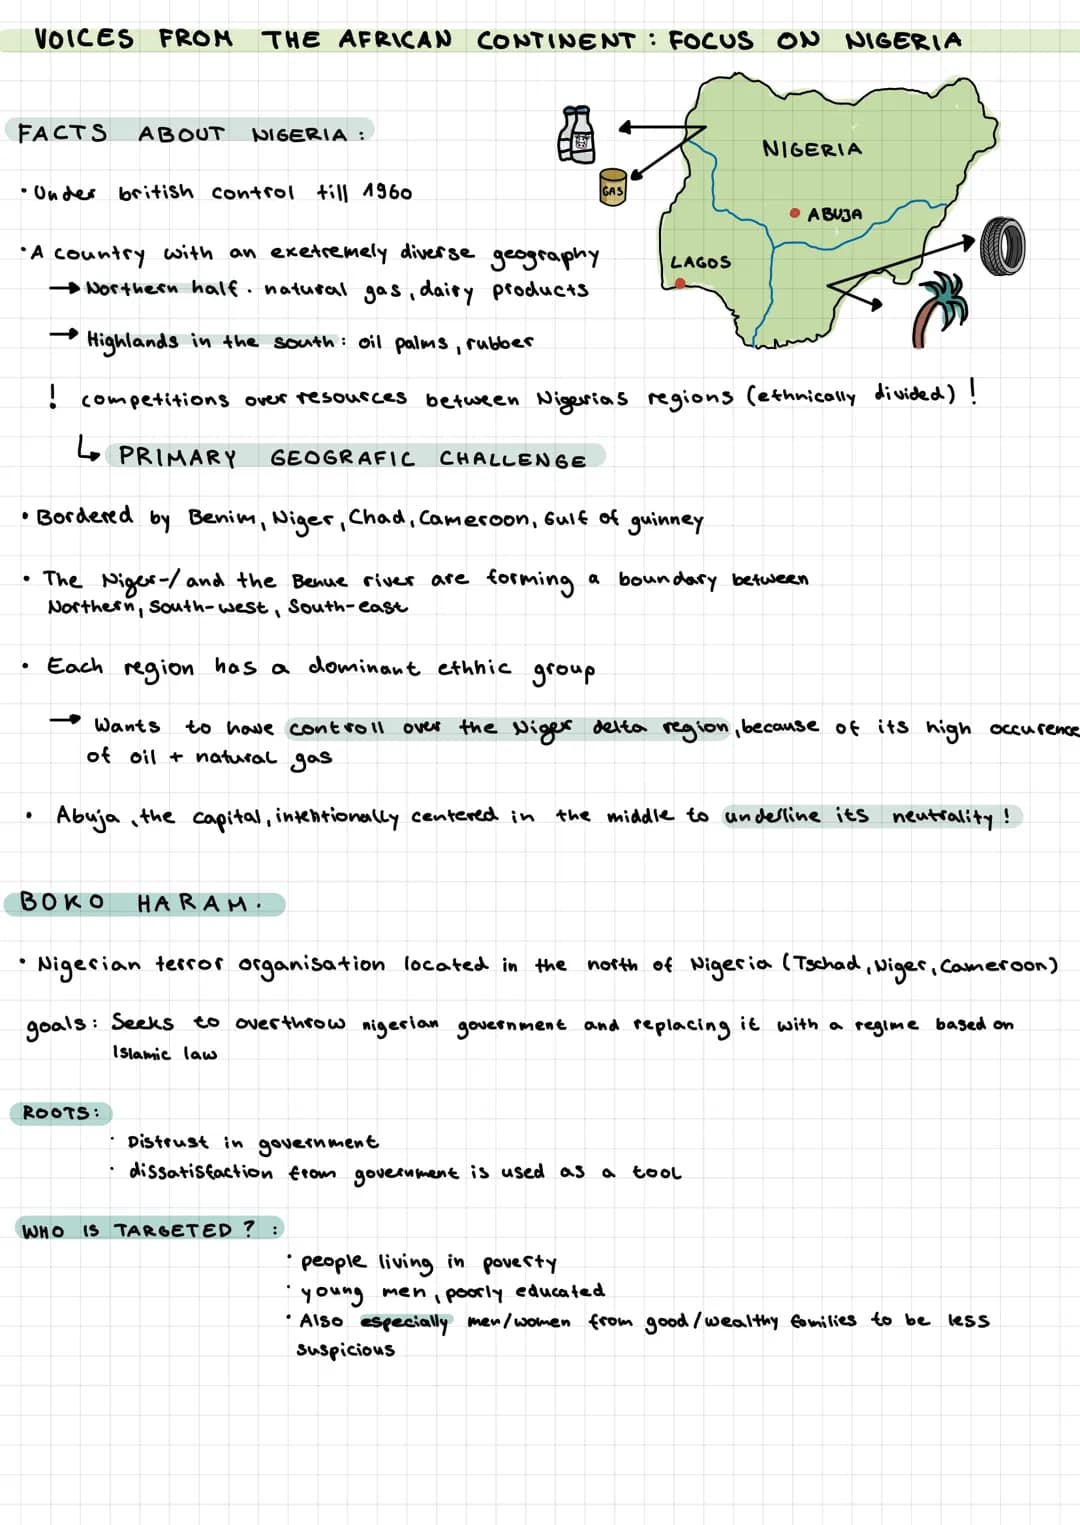 VOICES FROM THE AFRICAN CONTINENT : FOCUS ON NIGERIA
FACTS ABOUT NIGERIA :
NIGERIA
GAS
• Under british control till 1960
• ABUJA
• A country with an exetremely diverse geography
LAGOS
→ Northern half . natural gas, dairy products
→ Highlands in the south : oil palms, rubber
! competitions over resources between Nigerias regions (ethnically divided) !
↳ PRIMARY GEOGRAFIC CHALLENGE
• Bordered by Benim, Niger, Chad, Cameroon, Gulf of guinney
• The Niger-/ and the Benue river are forming a boundary between
Northern, South-west, South-east
• Each region has a dominant ethhic group
→ Wants to have controll over the Niger delta region, because of its high occurence
of oil + natural gas
• Abuja, the capital, intehtionally centered in the middle to underline its neutrality !
BOKO HARAM .
• Nigerian terror organisation located in the north of Nigeria (Tschad, Niger, Cameroon)
goals : Seeks to overthrow nigerian government and replacing it with a regime based on
Islamic law
ROOTS :
• Distrust in government
• dissatisfaction from government is used as a tool
WHO IS TARGETED ? :
• people living in poverty
• young men, poorly educated
• Also especially men/women from good/wealthy families to be less
suspicious